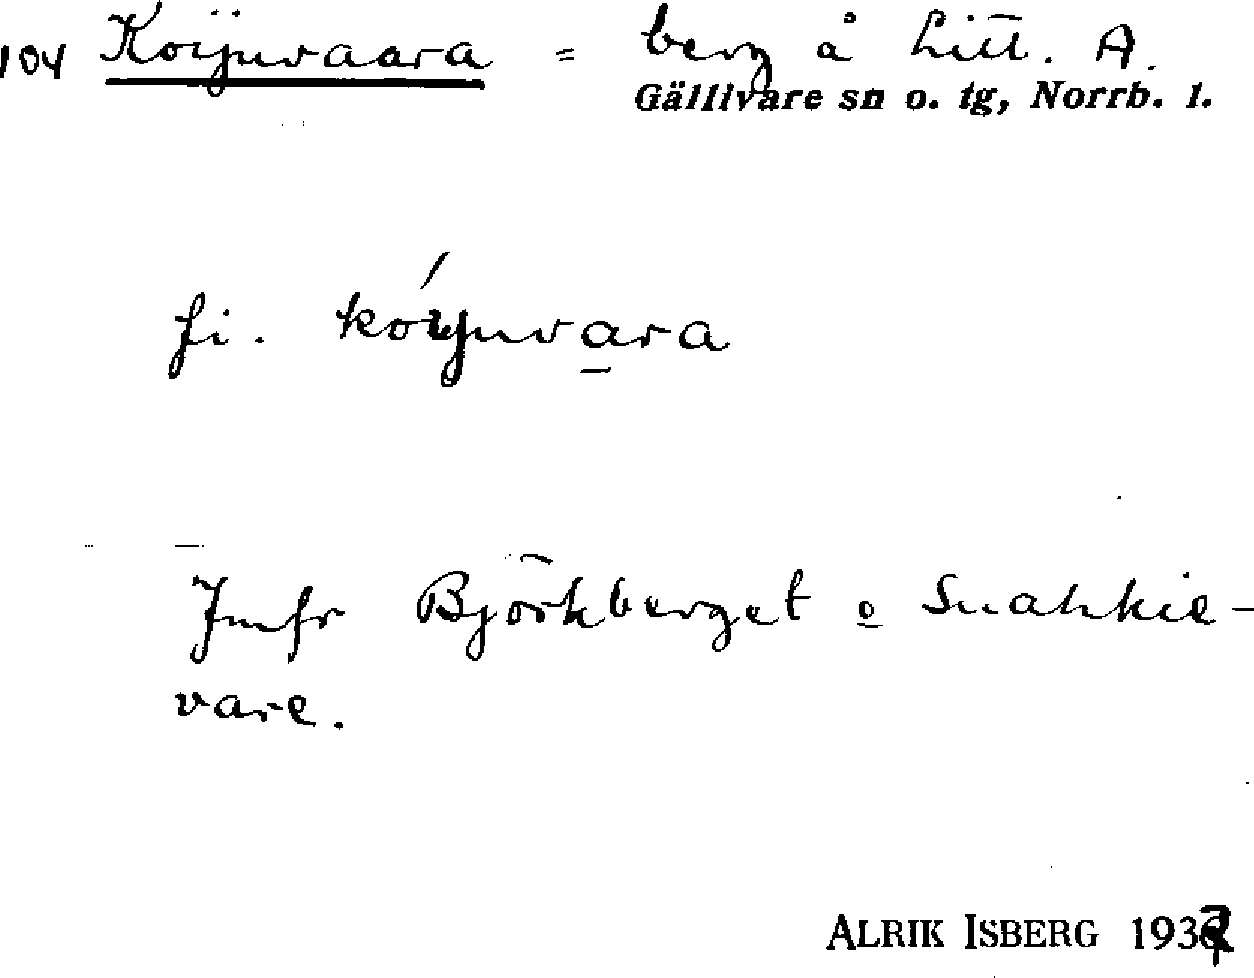 104 Koijuvaara = berg å Litt. A.
Gällivare sn o. tg, Norrb. l.
fi. koijuvara
Jmfr Björkberget o Snahkie-
vare.
ALRIK ISBERG 1937